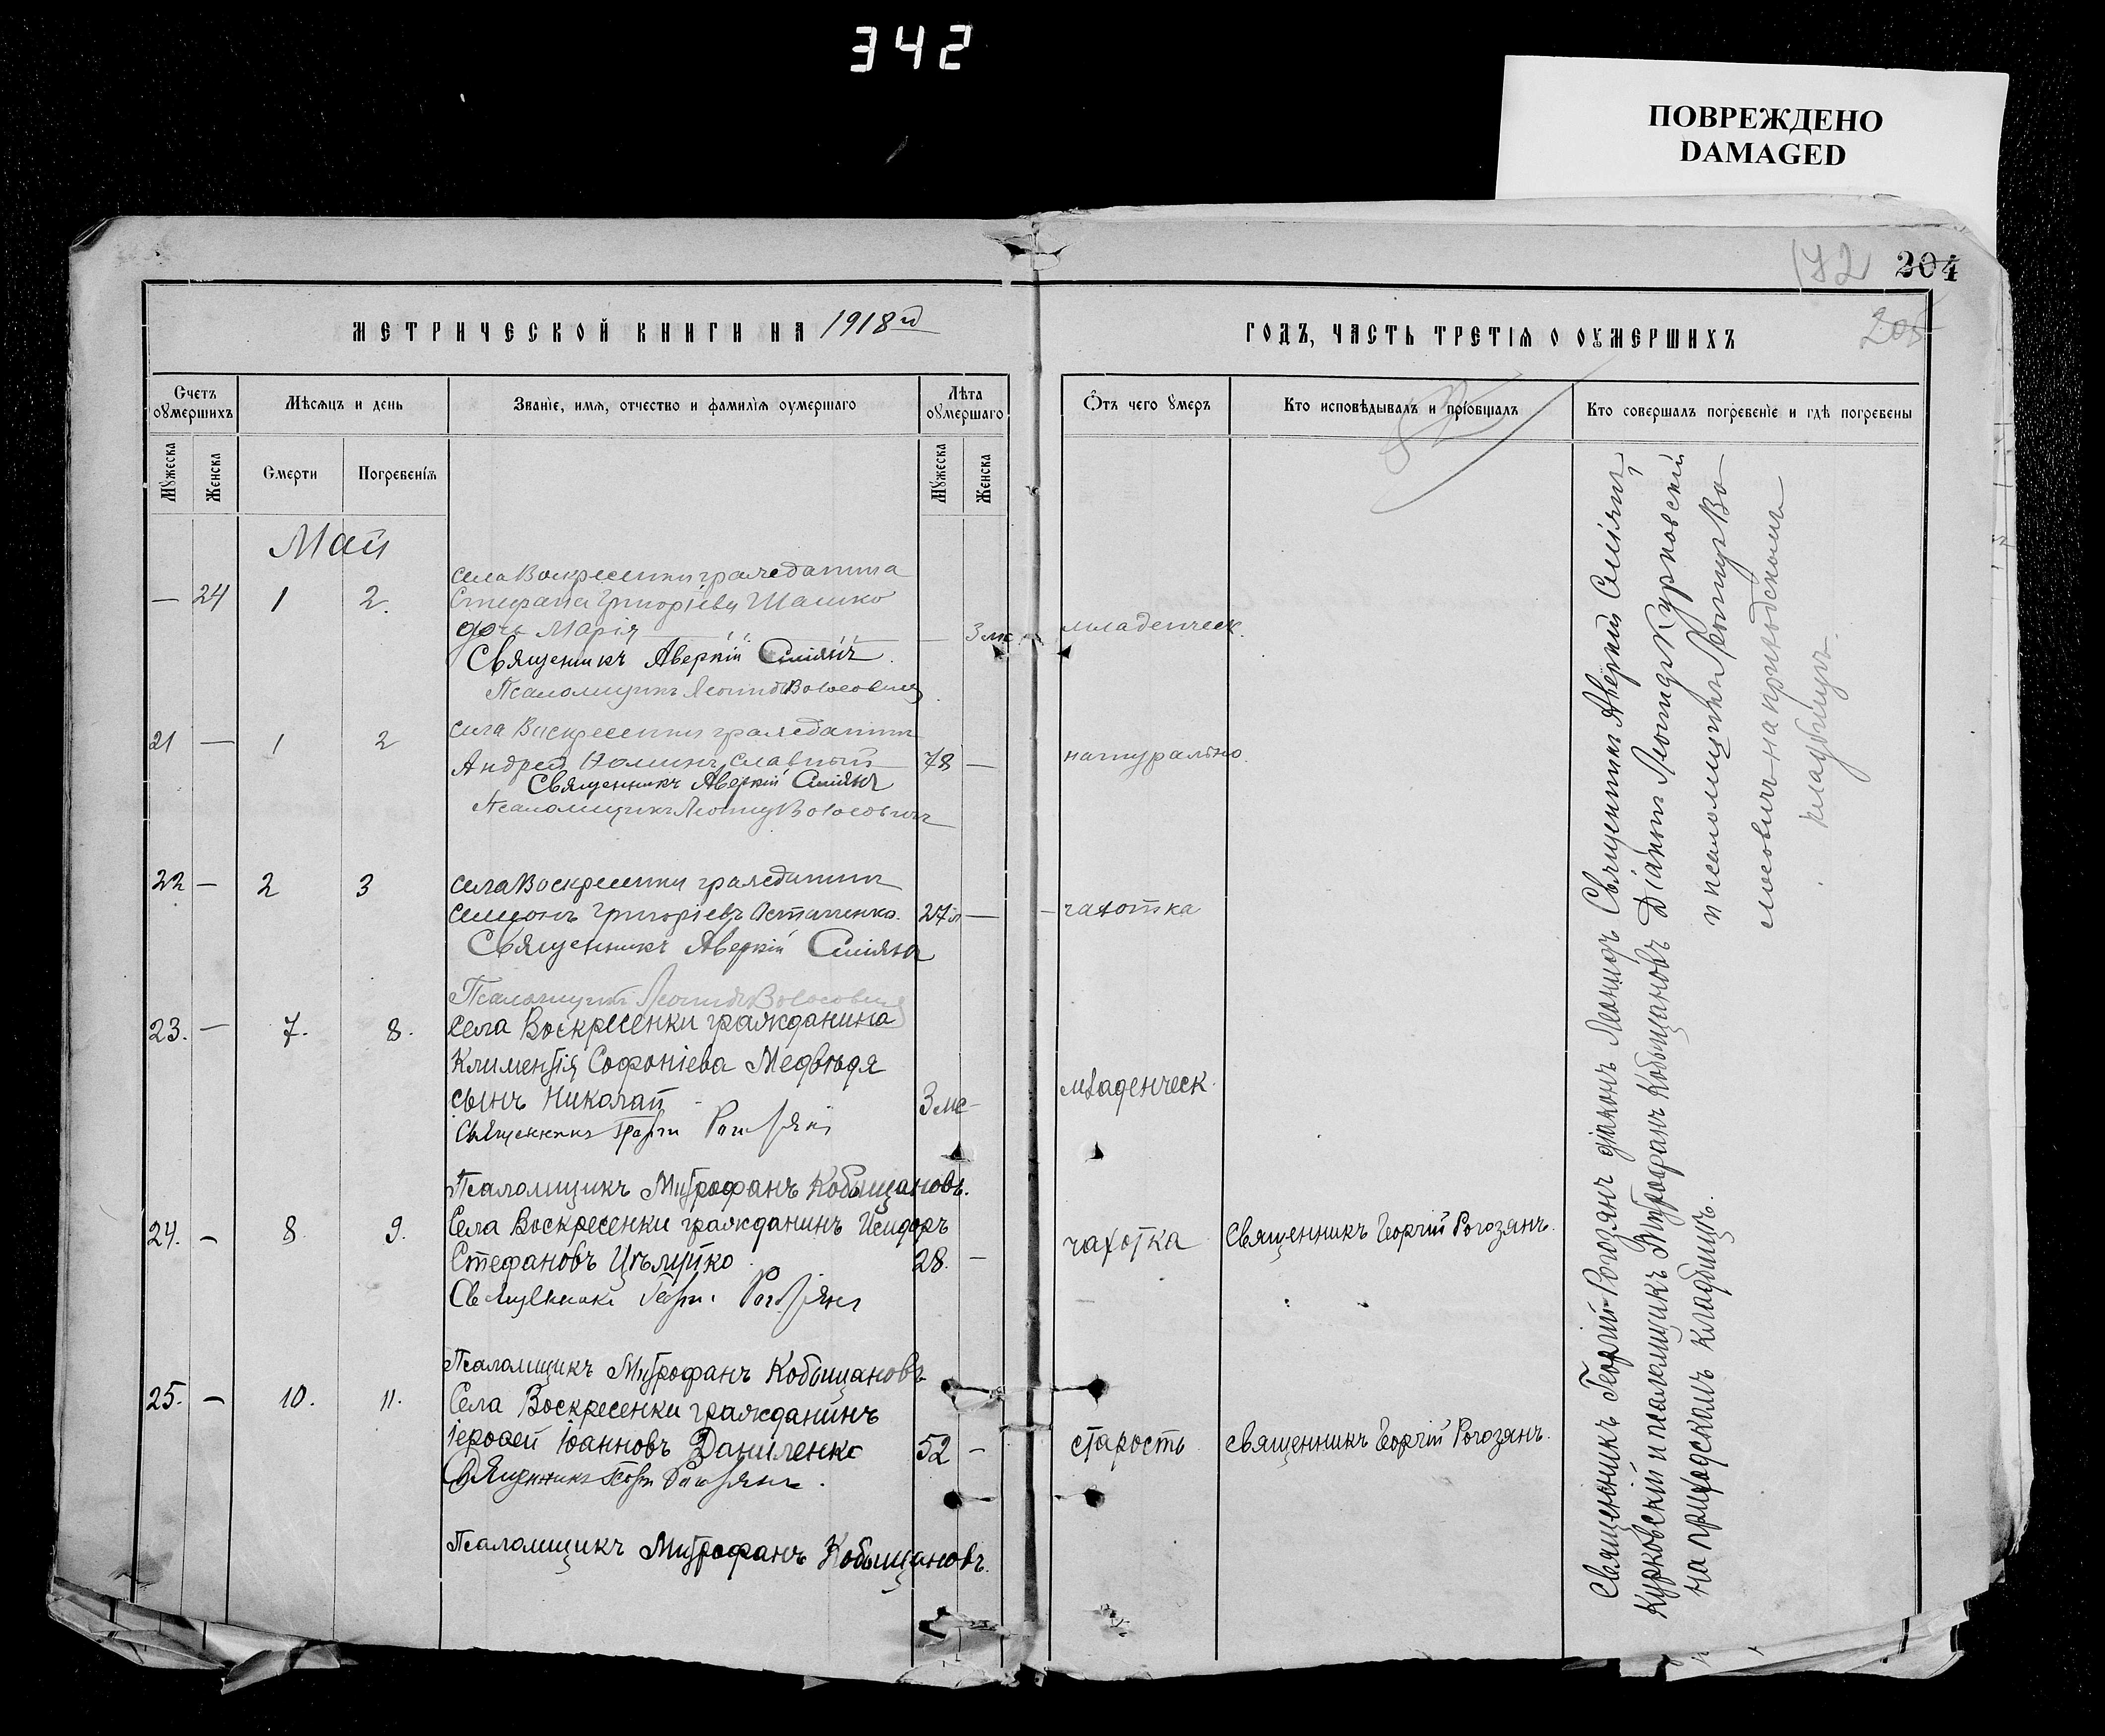 342
ПОВРЕЖДЕНО
DAMAGED
172
204
205
МЕТРИЧЕСКОЙ КНИГИ НА 1918й
ГОДЪ, ЧАСТЬ ТРЕТІЯ О ОУМЕРШИХЪ
Счетъ оумершихъ
Мѣсяцъ и день
Званіе, имя, отчество и фамилія оумершаго
Лѣта оумершаго
Отъ чего умеръ
Кто исповѣдывалъ и пріобщалъ
Кто совершалъ погребеніе и гдѣ погребены
Мужеска
Женска
Смерти
Погребенія
Мужеска
Женска
Май
села Воскресенки гражданина
— 24 1 2. Стефана Григоріева Шашко
дочь Марія — 3 мс младенческ.
Священникъ Аверкій
Псаломщикъ Леонидъ Волосовичъ
21 — 1 2 села Воскресенки гражданинъ
Андрей Славный 78 — натурально.
Священникъ Аверкій
Псаломщикъ Леонид Волосовичъ
22 — 2 3 села Воскресенки гражданинъ
Симеонъ Григоріевъ Осташенко. 27 л — чахотка
Священникъ Аверкій
Псаломщикъ Леонидъ Волосовичъ
23. — 7. 8. Села Воскресенки гражданина
Климентія Софоніева Медвѣдя
сынъ Николай 3 мс — младенческ.
Священникъ Георгій Рогозянъ
Псаломщикъ Митрофанъ Кобыщановъ.
24. — 8. 9. Села Воскресенки гражданинъ Исидоръ
Стефановъ Цѣлуйко 28. — чахотка Священникъ Георгій Рогозянъ.
Священникъ Георгій Рогозянъ
Псаломщикъ Митрофанъ Кобыщановъ
25. — 10. 11. Села Воскресенки гражданинъ
Іерофей Іоанновъ Даниленко 52 — старость Священникъ Георгій Рогозянъ.
Священникъ Георгій Рогозянъ.
Псаломщикъ Митрофанъ Кобыщановъ.
Священникъ Аверкій
Діаконъ Леонидъ Курковскій
и псаломщикъ Леонидъ Во-
лосовичъ на приходскомъ
кладбищѣ.
Священникъ Георгій Рогозянъ діаконъ Леонидъ
Курковскій и псаломщикъ Митрофанъ Кобыщановъ
на приходскомъ кладбищѣ.